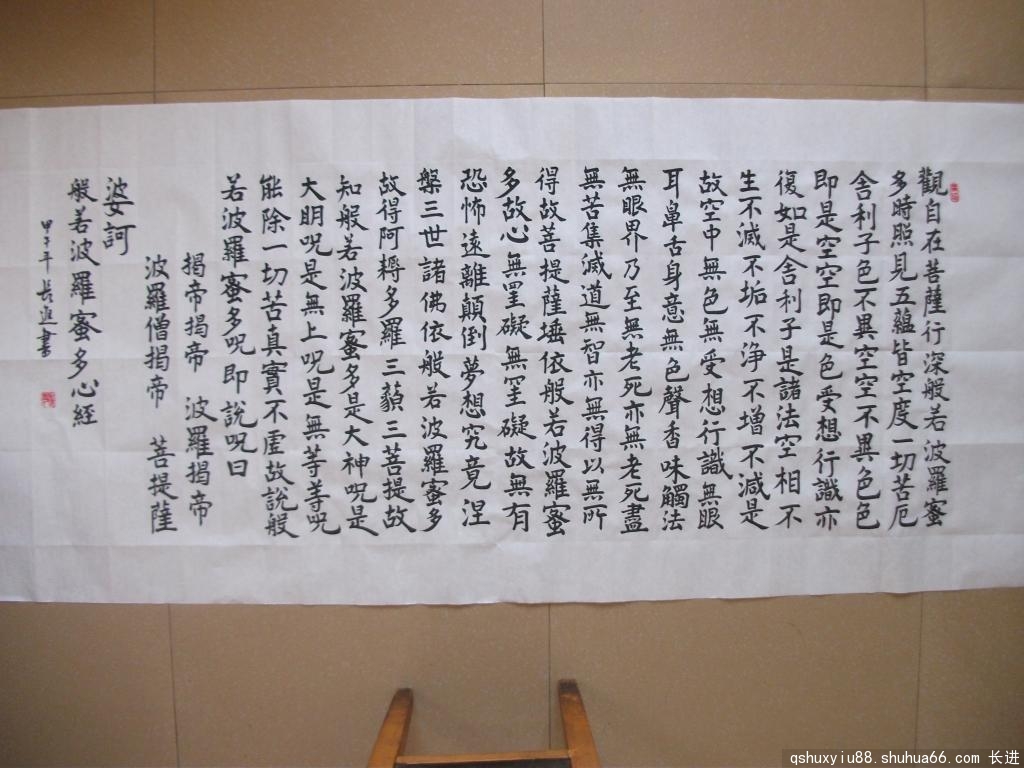 觀自在菩薩行深般若波羅蜜
多時照見五蘊皆空度一切苦厄
舍利子色不異空空不異色色
即是空空即是色受想行識亦
復如是舍利子是諸法空相不
生不滅不垢不净不增不減是
故空中無色無受想行識無眼
耳鼻舌身意無色聲香味觸法
無眼界乃至無老死亦無老死盡
無苦集滅道無智亦無得以無所
得故菩提薩埵依般若波羅蜜
多故心無罣礙無罣礙故無有
恐怖遠離顛倒夢想究竟涅
槃三世諸佛依般若波羅蜜多
故得阿耨多羅三藐三菩提故
知般若波羅蜜多是大神呪是
大明呪是無上呪是無等等呪
能除一切苦真實不虛故說般
若波羅蜜多呪即說呪曰
揭帝揭帝 波羅揭帝
波羅僧揭帝 菩提薩
婆訶
般若波羅蜜多心經
甲午年 長進書
qshuxyiu88.shuhua66.com 长进